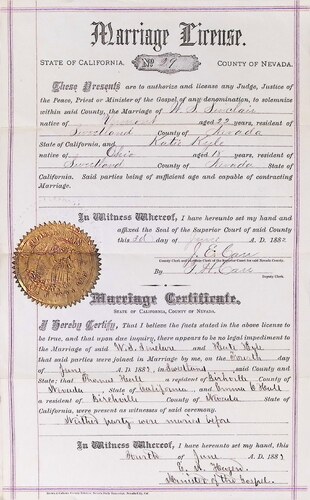 Marriage License.
STATE OF CALIFORNIA. No. 29 COUNTY OF NEVADA.
These Presents are to authorize and license any Judge, Justice of
the Peace, Priest or Minister of the Gospel, of any denomination, to solemnize
within said County, the Marriage of W. S. Sinclair
native of Vermont aged 22 years, resident of
Sweetland County of Nevada
State of California, and Katie Kyle
native of Ohio aged 18 years, resident of
Sweetland County of Nevada State of
California. Said parties being of sufficient age and capable of contracting
Marriage.
In Witness Whereof, I have hereunto set my hand and
affixed the Seal of the Superior Court of said County
this 3d day of June A. D. 188
J. E. Carr
County Clerk and
By J. H. Carr
Deputy Clerk.
Marriage Certificate.
STATE OF CALIFORNIA, COUNTY OF NEVADA.
I Hereby Certify, That I believe the facts stated in the above license to
be true, and that upon due inquiry, there appears to be no legal impediment to
the Marriage of said W. S. and Kate Kyle
that said parties were joined in Marriage by me, on the Fourth day
of June A. D. 188 in Sweetland, said County and
State; that Thomas a resident of Birchville County of
Nevada, State of California and Emma
a resident of Birchville County of Nevada, State of
California, were present as witnesses of said ceremony.
Neither party were married before
In Witness Whereof, I have hereunto set my hand, this
Fourth of June A. D. 188
Minister of the Gospel.